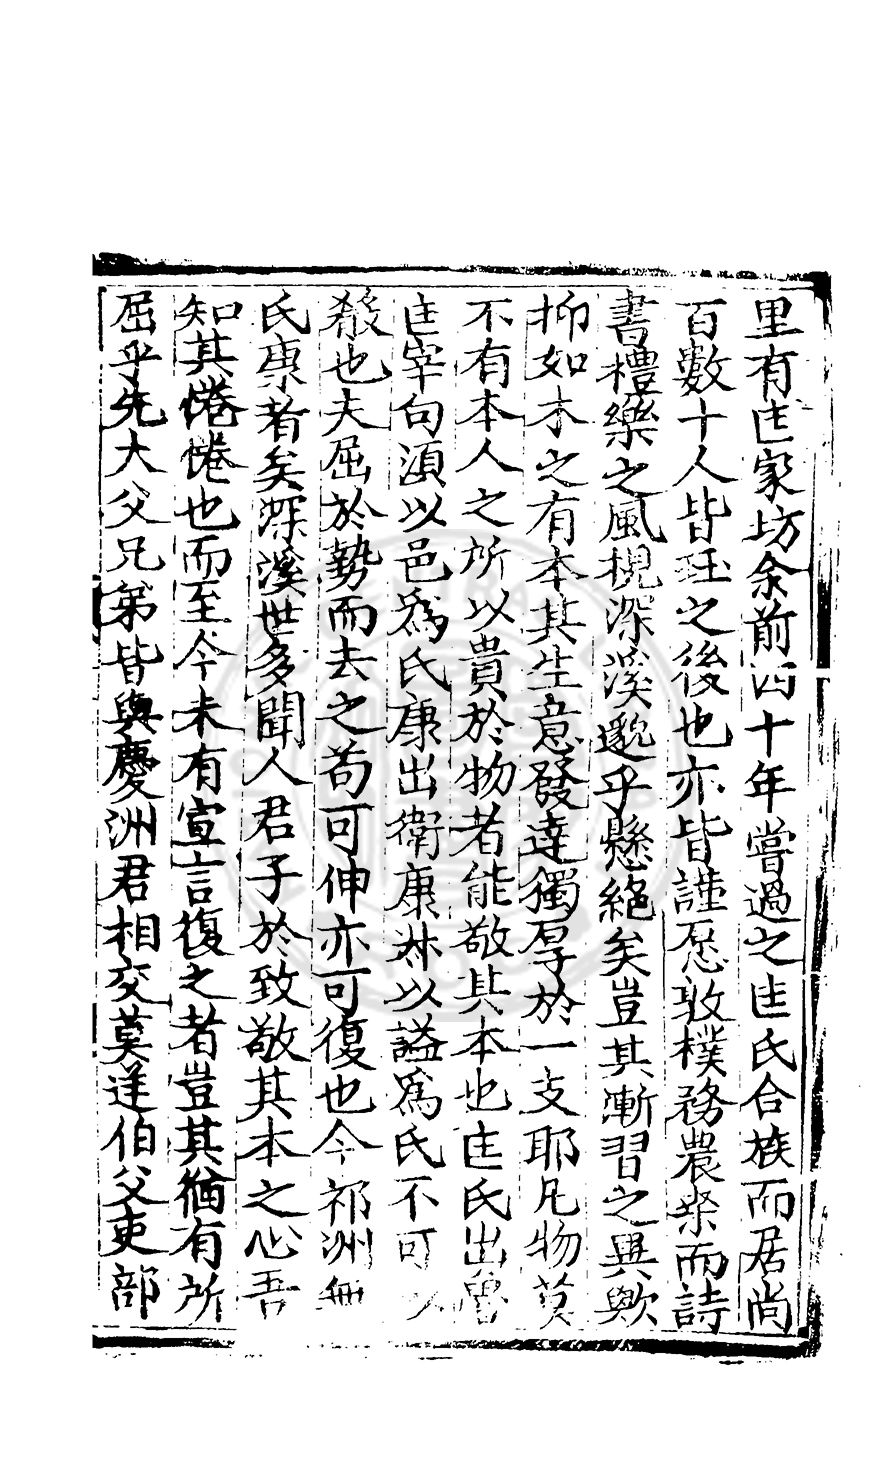 里有匡家坊余前四十年嘗過之匡氏合族而居尚
百數十人皆珏之後也亦皆謹愿敦樸務農桑而詩
書禮樂之風視深溪邈乎懸絕矣豈其漸習之異歟
抑如木之有本其生意發達獨厚於一支耶凡物莫
不有本人之所以貴於物者能敬其本也匡氏出魯
匡宰句須以邑為氏康出衛康叔以謚為氏不可以
殽也夫屈於勢而去之苟可伸亦可復也今祁洲無
氏康者矣深溪世多聞人君子於致敬其本之心吾
知其惓惓也而至今未有宣言復之者豈其猶有所
屈乎先大父兄弟皆與慶洲君相交莫逆伯父吏部